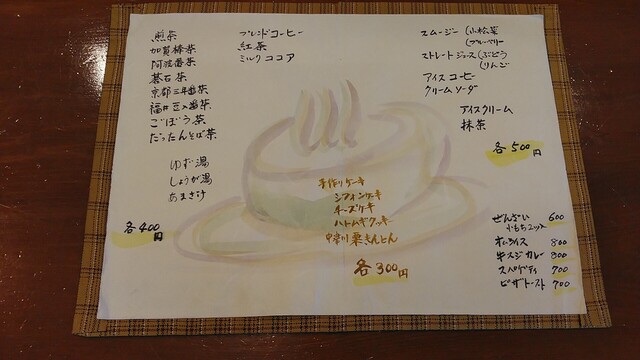 煎茶
加賀棒茶
阿波番茶
碁石茶
京都三年番茶
番茶
ごぼう茶
だったんそば茶
ゆず湯
しょうが湯
あまざけ
各400円
ブレンドコーヒー
紅茶
ミルクココア
手作りケーキ
シフォンケーキ
チーズケーキ
ハトムギクッキー
中津川栗きんとん
各300円
スムージー(小松菜
(ブルーベリー
ストレートジュース(ぶどう
(りんご
アイスコーヒー
クリームソーダ
アイスクリーム
抹茶
各500円
ぜんざい 600
小もち2ヶ入
オムライス 800
牛スジカレー 800
スパゲティ 700
ピザトースト 700